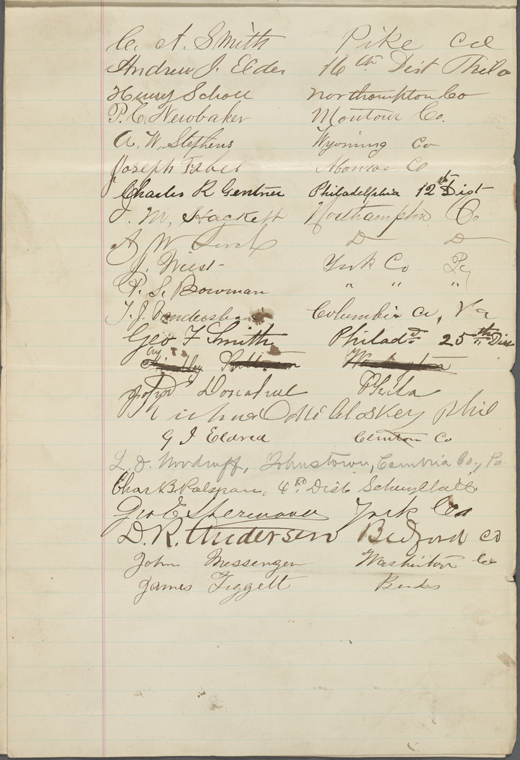 C. A. Smith Pike Co
Andrew J. Elder 16th Dist Phila
Henry Scholl Northampton Co
P. C. Newbaker Montour Co.
A. W. Stephens Wyoming Co
Joseph Fisher Monroe Co
Charles R Gentner Philadelphia 12th Dist
J. M. Hackett Northampton Co
A W D D
J. Wiest York Co Pa
P. S. Bowman " " "
T. J. Columbia Co, Pa
Geo F Smith Philada 25th Dist
John Donahue Phila
McCloskey Phil
G J Eldred Clinton Co
L. D. Woodruff, Johnstown, Cambria Co, Pa
Chas B. 4th Dist
Geo E Sherwood York Co
D. R. Anderson Bedford co
John Messenger Washinton Co
James Tiggett Bucks